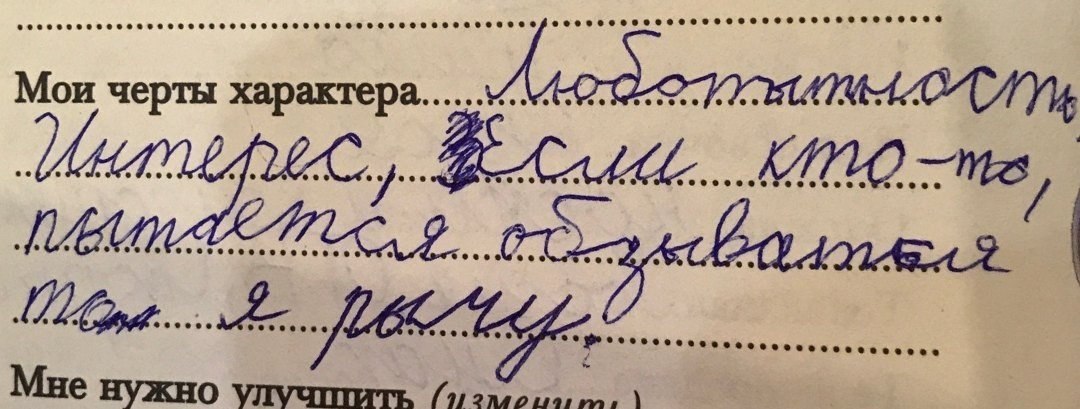 Мои черты характера..... Любопытность,
Интерес, Если кто-то,
пытается обзываться
то я рычу.
Мне нужно улучшить (изменить)